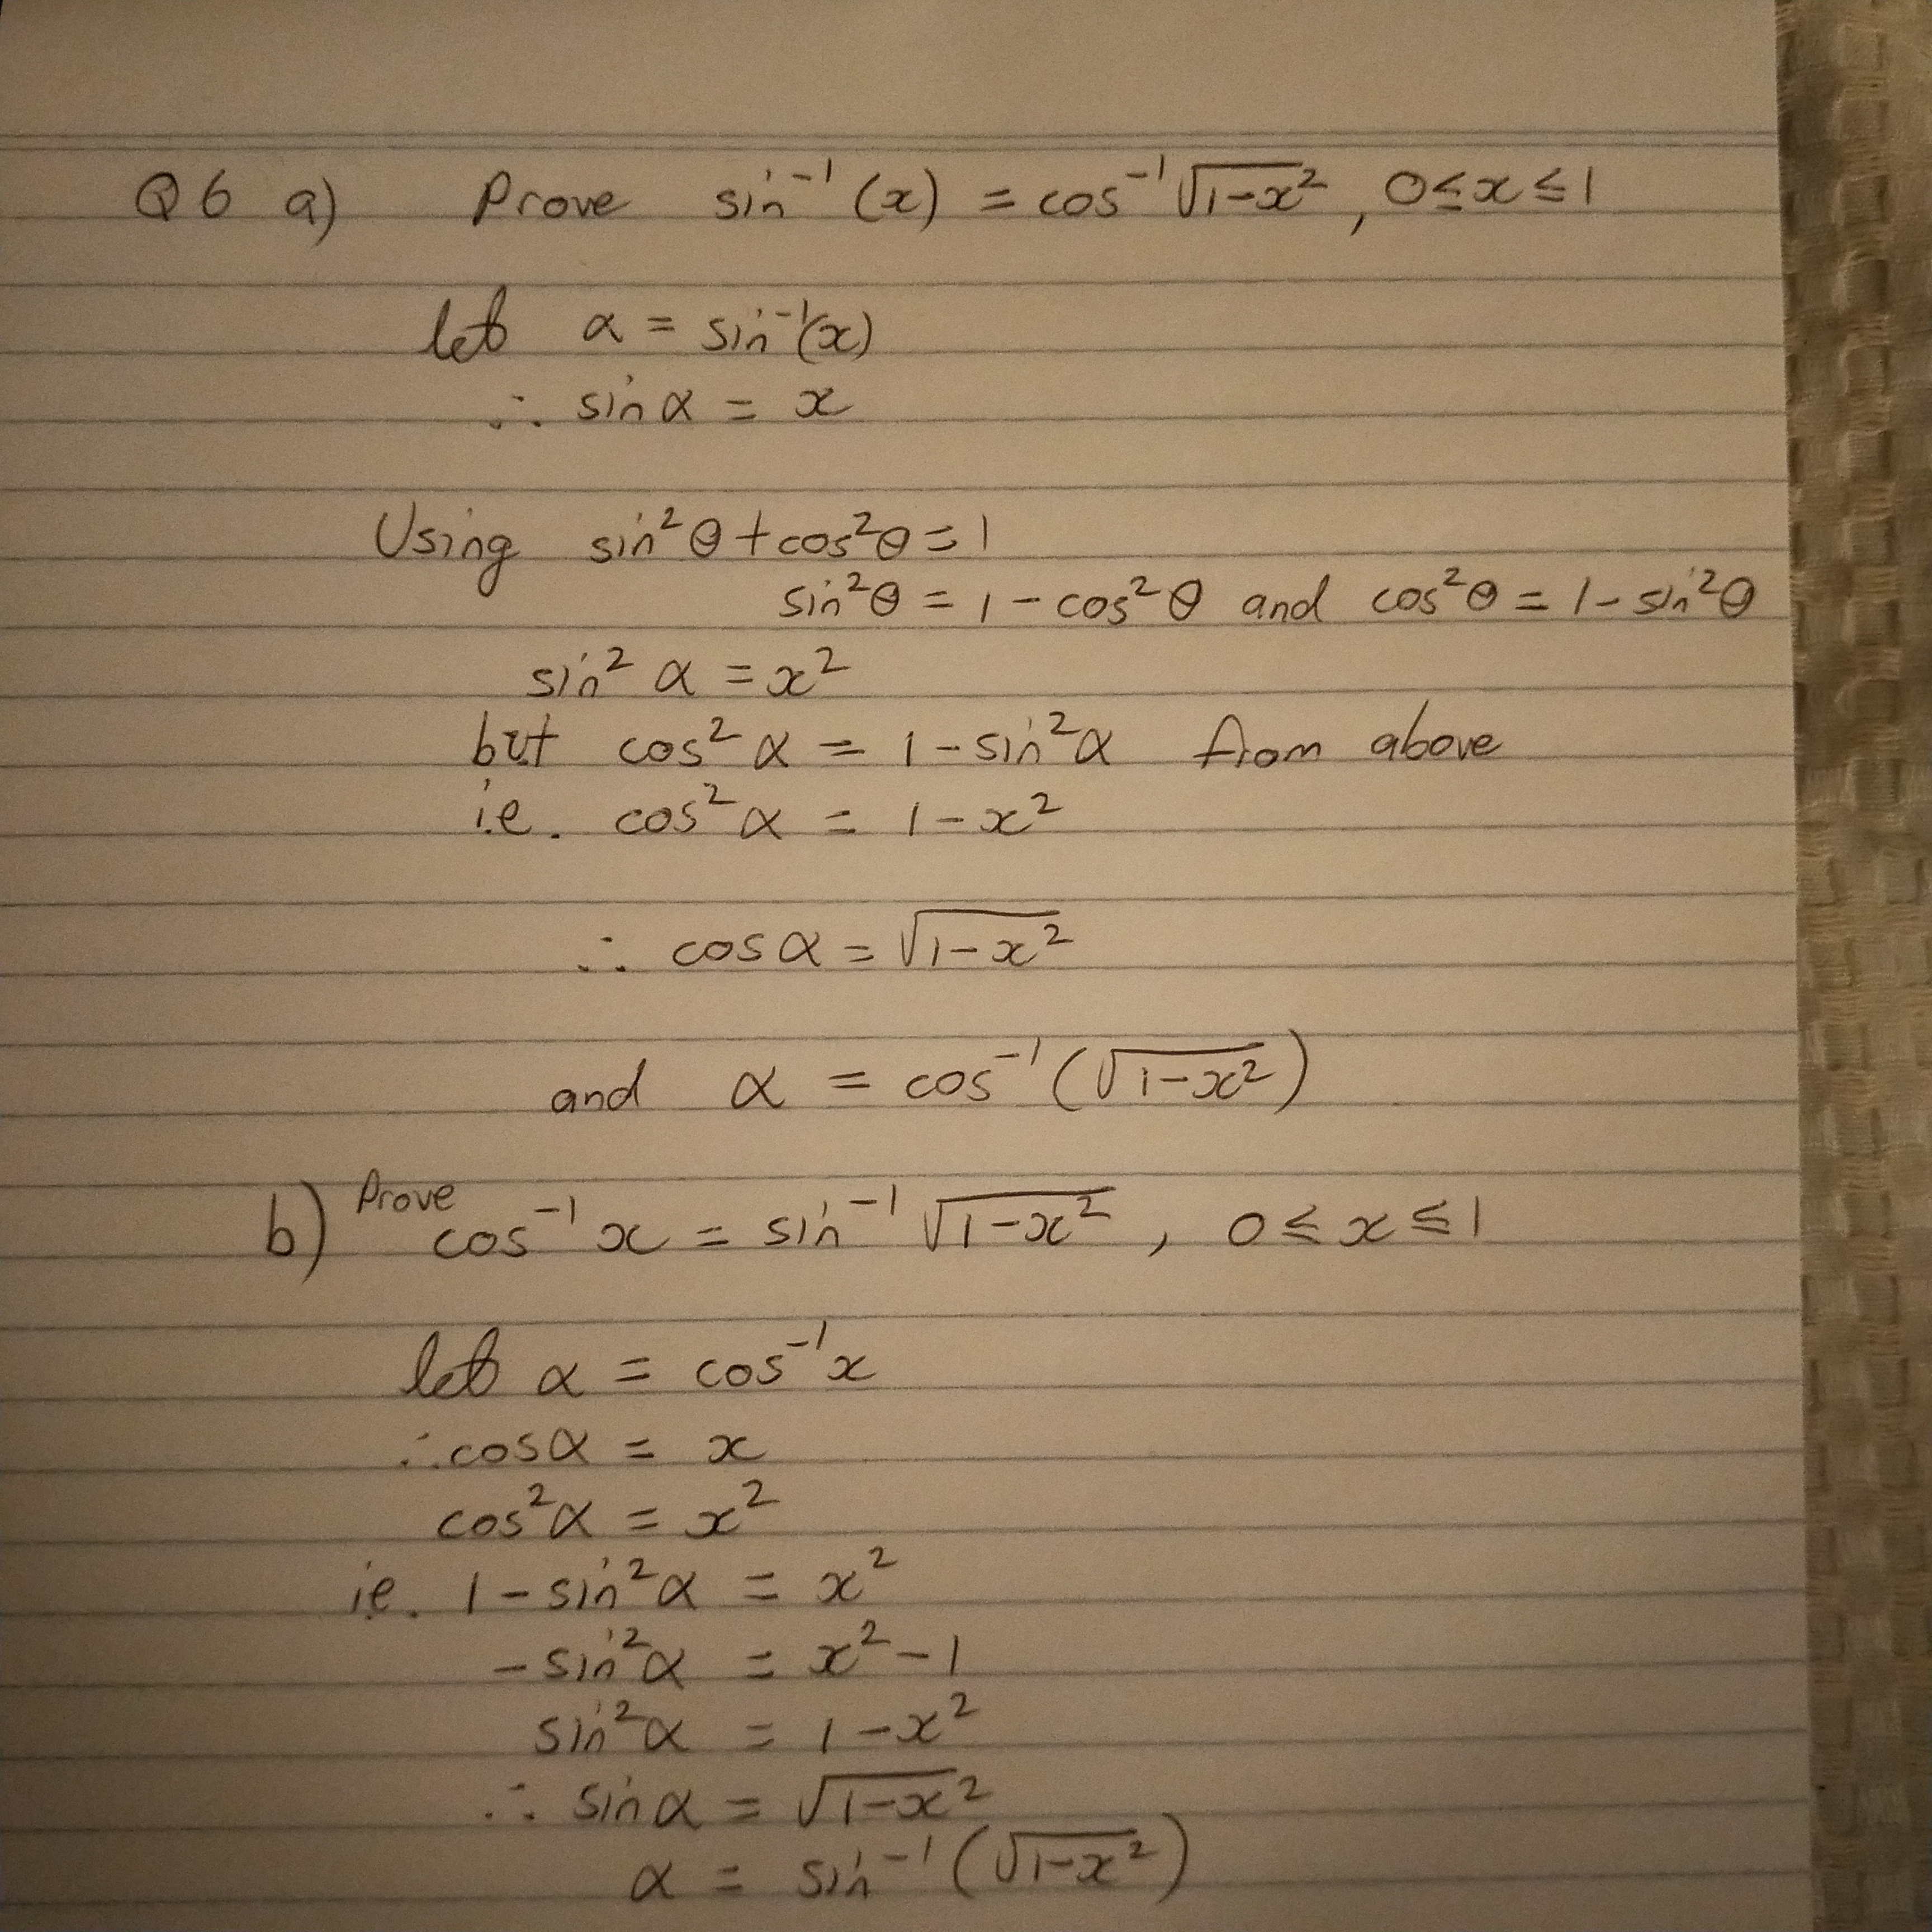 Q6 a) Prove sin⁻¹(x) = cos⁻¹√(1-x²), 0≤x≤1
let α = sin⁻¹(x)
∴ sin α = x
Using sin²θ + cos²θ = 1
sin²θ = 1 - cos²θ and cos²θ = 1 - sin²θ
sin² α = x²
but cos² α = 1 - sin²α from above
i.e. cos²α = 1 - x²
∴ cos α = √(1-x²)
and α = cos⁻¹(√(1-x²))
b) Prove cos⁻¹ x = sin⁻¹ √(1-x²), 0 ≤ x ≤ 1
let α = cos⁻¹x
∴ cos α = x
cos²α = x²
ie. 1 - sin²α = x²
-sin²α = x² - 1
sin²α = 1 - x²
∴ sin α = √(1-x²)
α = sin⁻¹(√(1-x²))